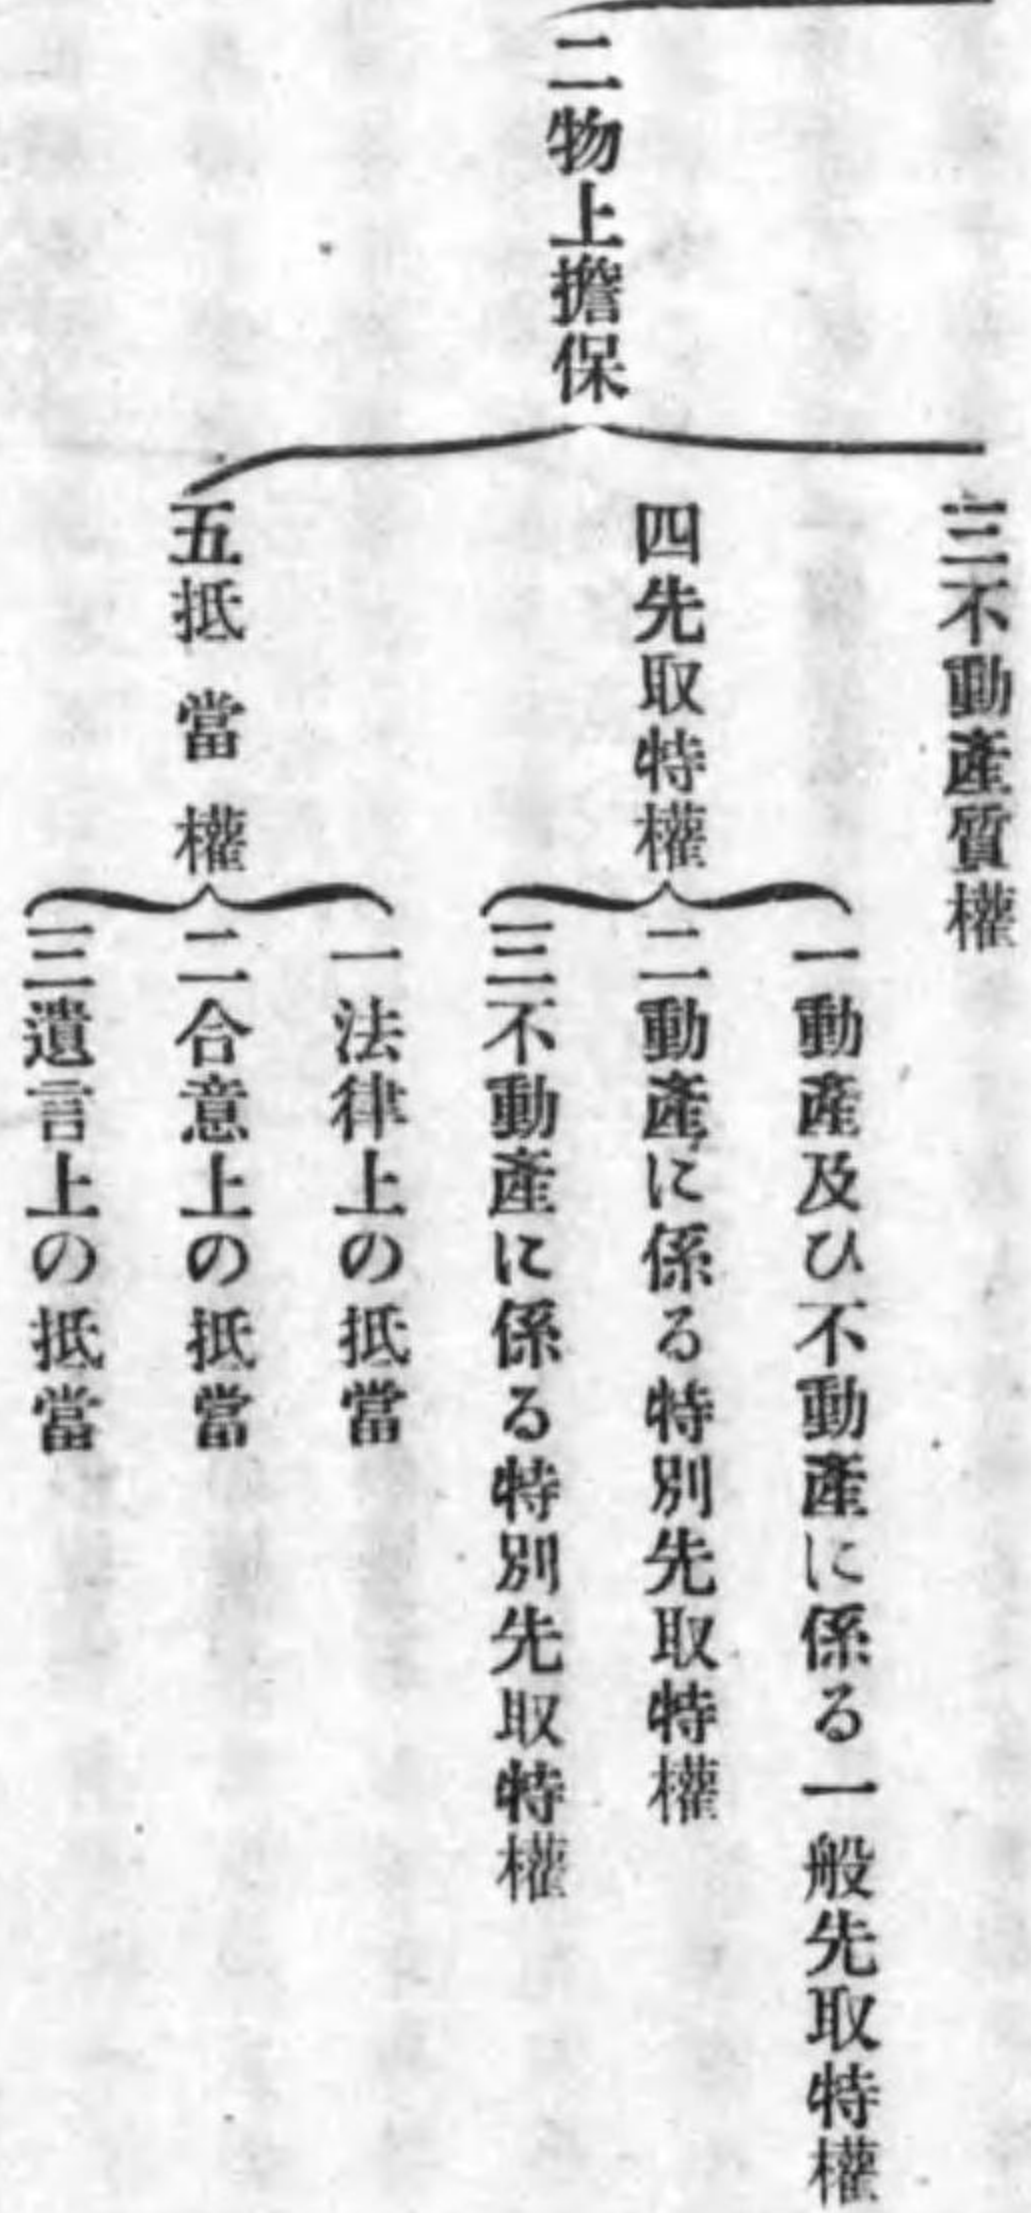 二物上擔保
三不動產質權
四先取特權
一動產及ひ不動產に係る一般先取特權
二動產に係る特別先取特權
三不動產に係る特別先取特權
五抵當權
一法律上の抵當
二合意上の抵當
三遺言上の抵當